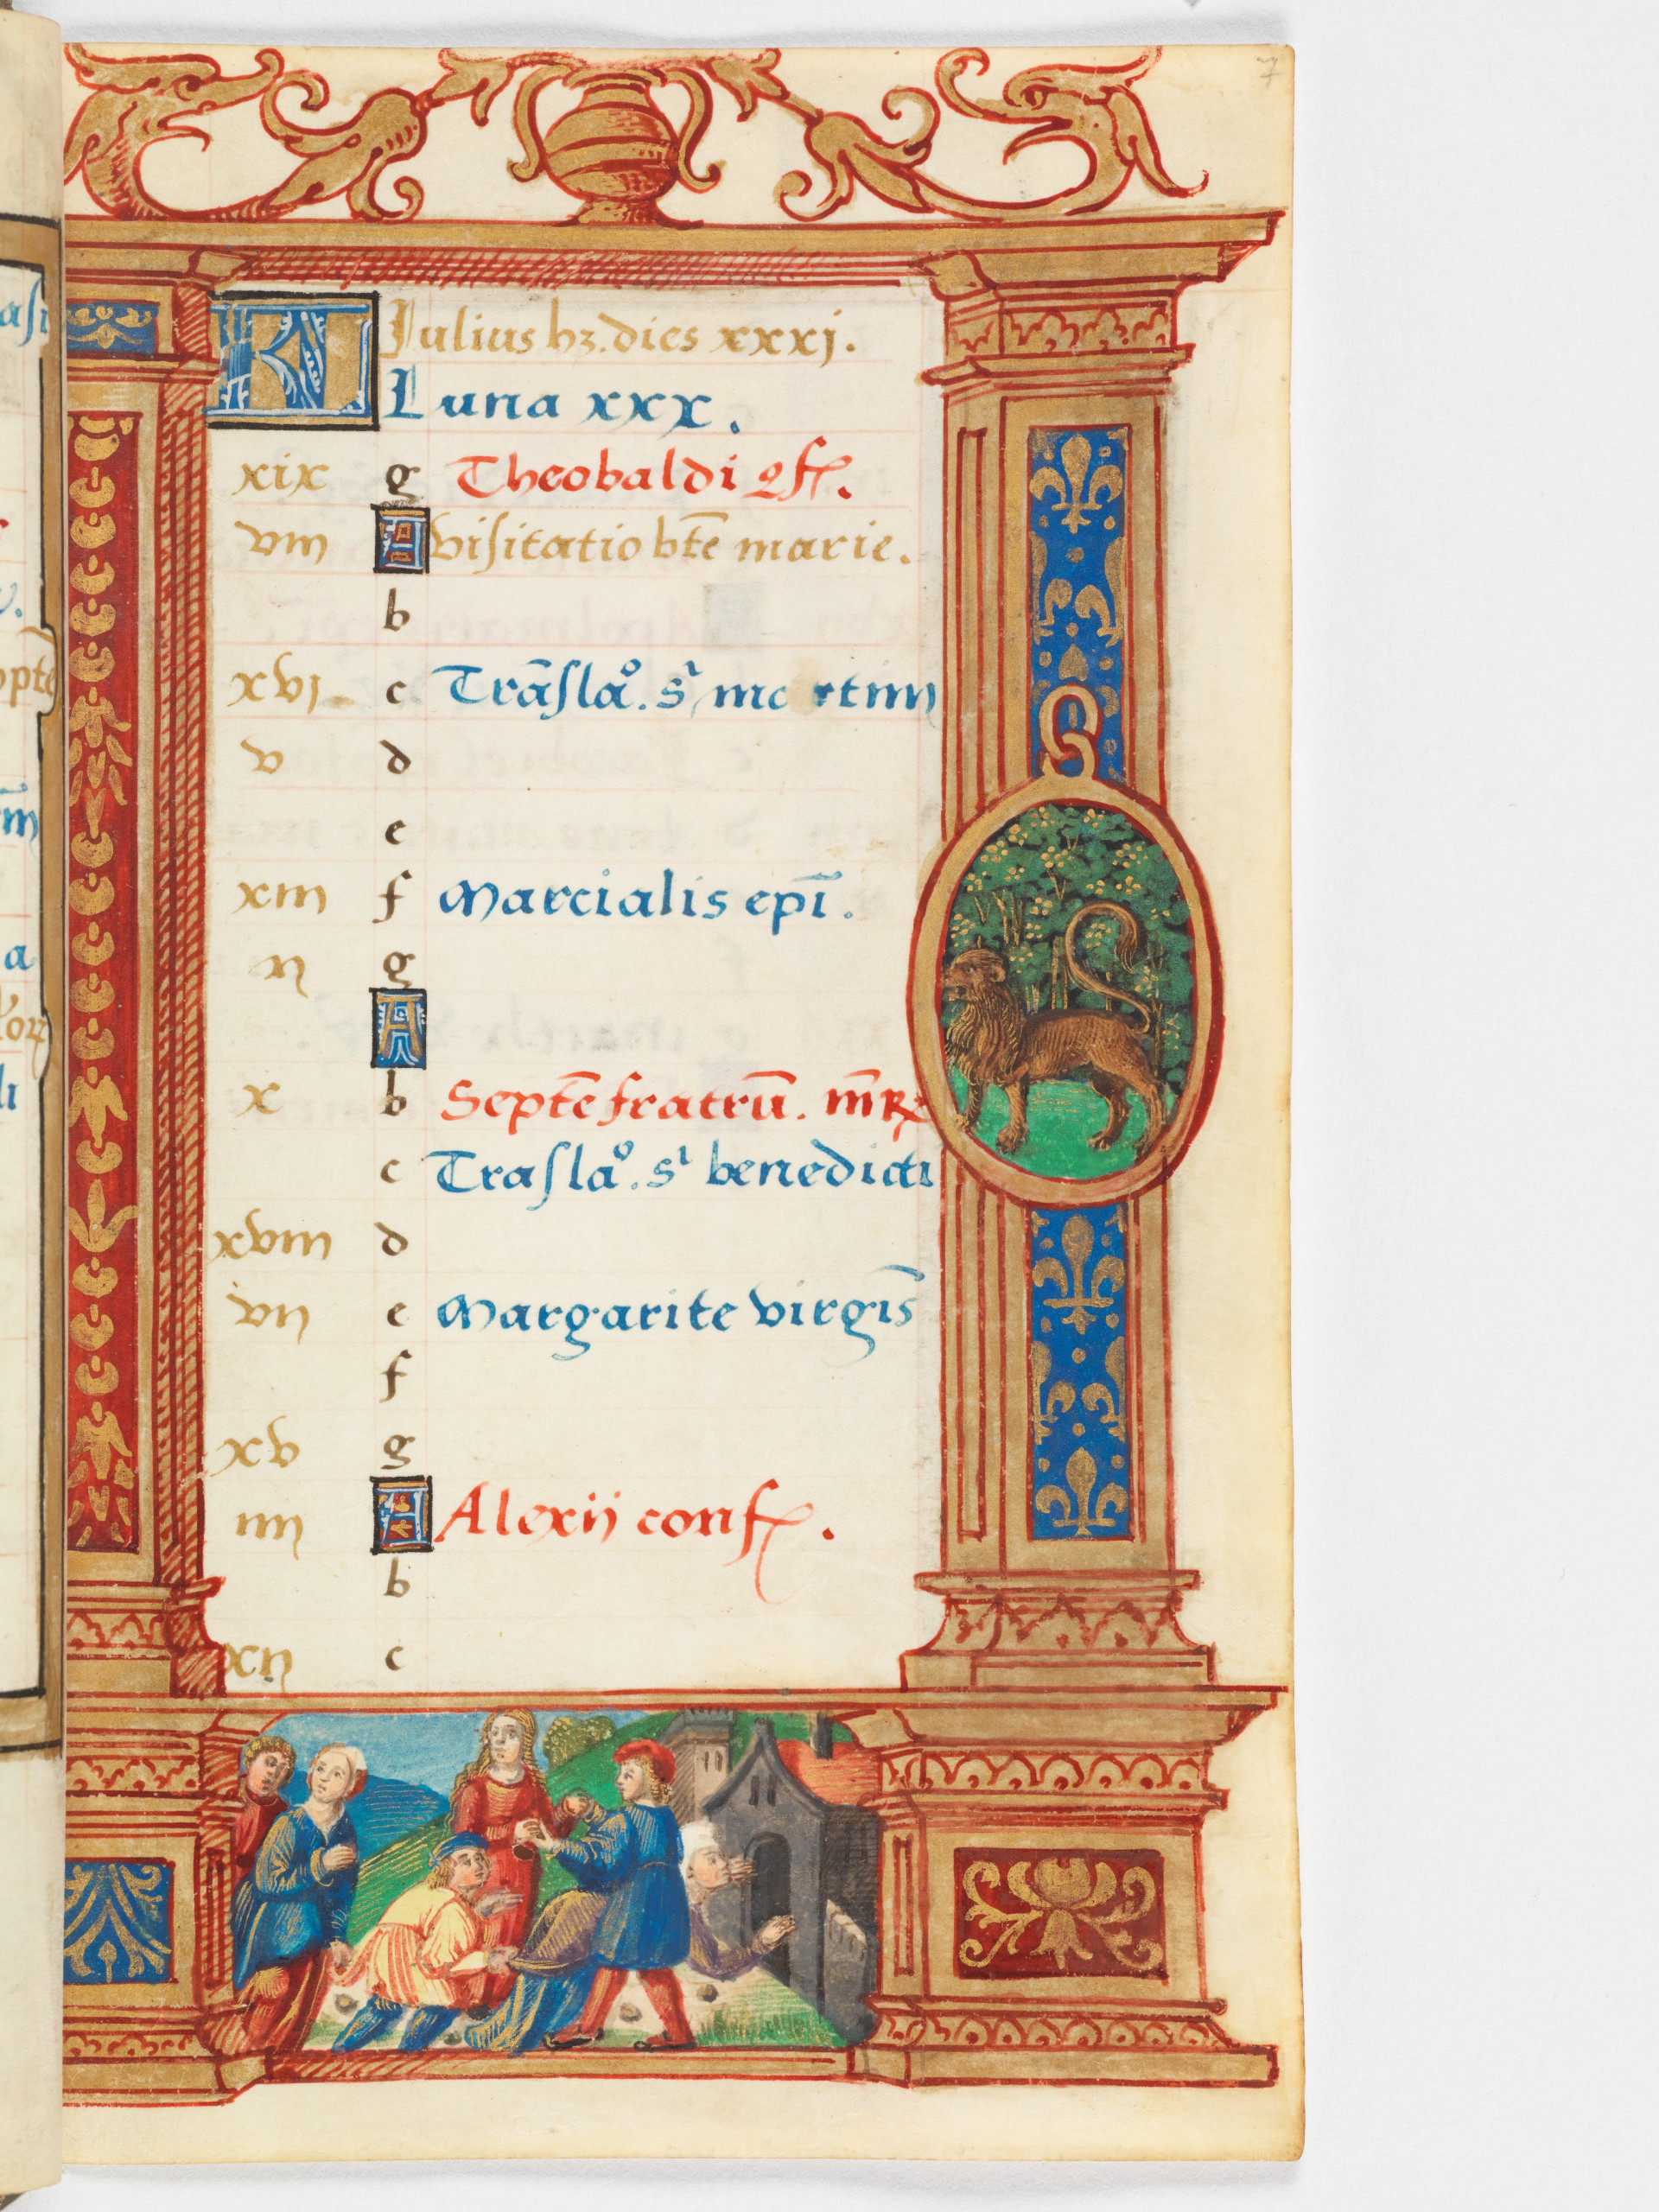 7
KL Iulius hꝫ. dies xxxj.
Luna xxx.
xix g Theobaldi ꝯf.
viii A visitatio bt̄e marie.
b
xvj c Trāslaº. sⁱ martini
v d
e
xiii f Marcialis ep̄i.
ii g
A
x b Septē fratrū. m̄rꝝ
c Traslaº. sⁱ benedicti
xviii d
vii e Margarite virgīs
f
xv g
iiii A Alexii conf.
b
xii c